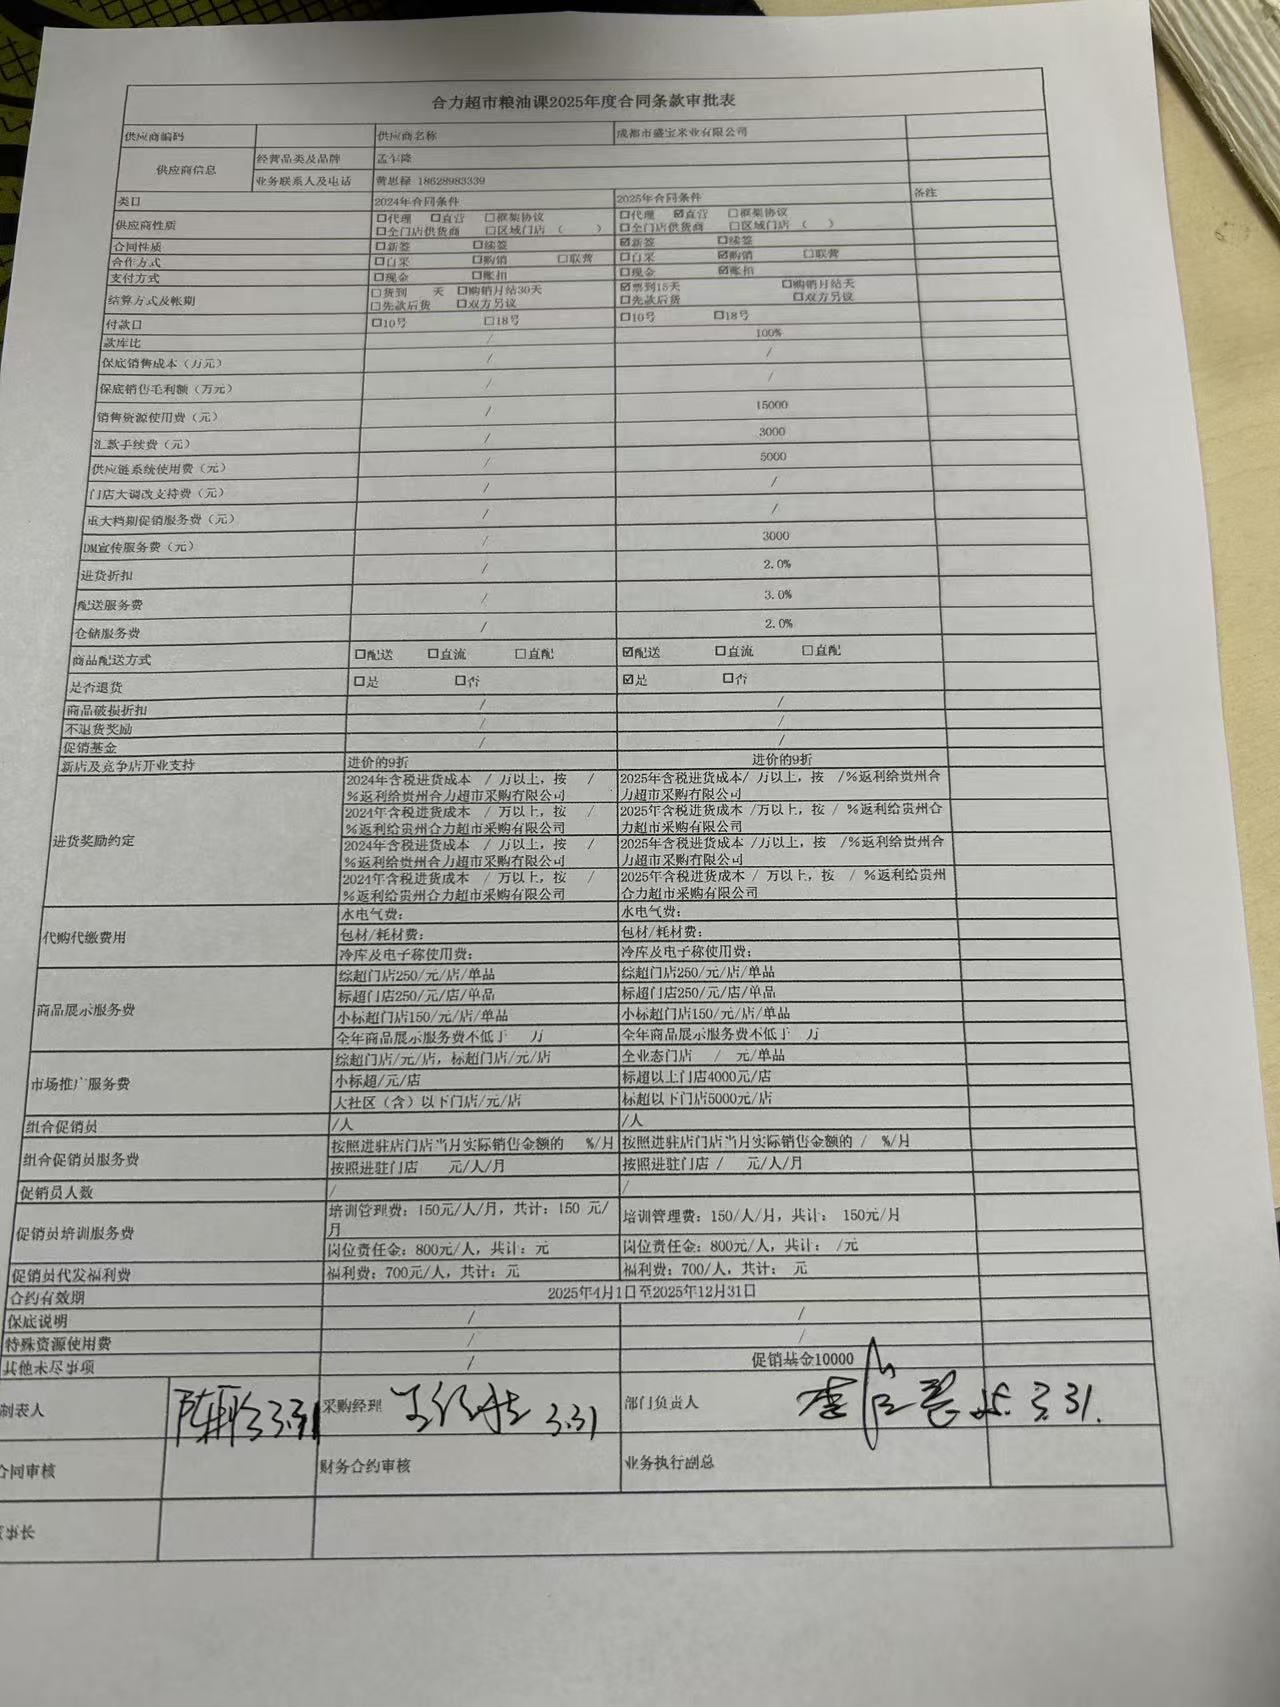 合力超市粮油课2025年度合同条款审批表
供应商编码 供应商名称 成都市盛宝米业有限公司
供应商信息 经营品类及品牌 孟乍隆
业务联系人及电话 黄思禄 18628983339
类目 2024年合同条件 2025年合同条件 备注
供应商性质 □代理 □直营 □框架协议 □代理 ☑直营 □框架协议
□全门店供货商 □区域门店 ( ) □全门店供货商 □区域门店 ( )
合同性质 □新签 □续签 ☑新签 □续签
合作方式 □自采 □购销 □联营 □自采 ☑购销 □联营
支付方式 □现金 □账扣 □现金 ☑账扣
结算方式及帐期 □货到 天 □购销月结30天 ☑票到15天 □购销月结天
□先款后货 □双方另议 □先款后货 □双方另议
付款日 □10号 □18号 □10号 □18号
款库比 / 100%
保底销售成本(万元) / /
保底销售毛利额(万元) / /
销售资源使用费(元) / 15000
汇款手续费(元) / 3000
供应链系统使用费(元) / 5000
门店大调改支持费(元) / /
重大档期促销服务费(元) / /
DM宣传服务费(元) / 3000
进货折扣 / 2.0%
配送服务费 / 3.0%
仓储服务费 / 2.0%
商品配送方式 □配送 □直流 □直配 ☑配送 □直流 □直配
是否退货 □是 □否 ☑是 □否
商品破损折扣 / /
不退货奖励 / /
促销基金 / /
新店及竞争店开业支持 进价的9折 进价的9折
进货奖励约定
2024年含税进货成本 / 万以上,按 / 2025年含税进货成本/ 万以上,按 /%返利给贵州合
%返利给贵州合力超市采购有限公司 力超市采购有限公司
2024年含税进货成本 / 万以上,按 / 2025年含税进货成本 /万以上,按 / %返利给贵州合
%返利给贵州合力超市采购有限公司 力超市采购有限公司
2024年含税进货成本 / 万以上,按 / 2025年含税进货成本 /万以上,按 /%返利给贵州合
%返利给贵州合力超市采购有限公司 力超市采购有限公司
2024年含税进货成本 / 万以上,按 / 2025年含税进货成本 / 万以上,按 / %返利给贵州
%返利给贵州合力超市采购有限公司 合力超市采购有限公司
代购代缴费用
水电气费: 水电气费:
包材/耗材费: 包材/耗材费:
冷库及电子称使用费: 冷库及电子称使用费:
商品展示服务费
综超门店250/元/店/单品 综超门店250/元/店/单品
标超门店250/元/店/单品 标超门店250/元/店/单品
小标超门店150/元/店/单品 小标超门店150/元/店/单品
全年商品展示服务费不低于 万 全年商品展示服务费不低于 万
市场推广服务费
综超门店/元/店,标超门店/元/店 全业态门店 / 元/单品
小标超/元/店 标超以上门店4000元/店
大社区(含)以下门店/元/店 标超以下门店5000元/店
组合促销员 /人 /人
组合促销员服务费
按照进驻店门店当月实际销售金额的 %/月 按照进驻店门店当月实际销售金额的 / %/月
按照进驻门店 元/人/月 按照进驻门店 / 元/人/月
促销员人数 / /
促销员培训服务费
培训管理费:150元/人/月,共计:150 元/ 培训管理费:150/人/月,共计: 150元/月
月
岗位责任金:800元/人,共计:元 岗位责任金:800元/人,共计: /元
促销员代发福利费 福利费:700元/人,共计:元 福利费:700/人,共计: 元
合约有效期 2025年4月1日至2025年12月31日
保底说明 / /
特殊资源使用费 / /
其他未尽事项 / 促销基金10000
制表人 3.31 采购经理 3.31 部门负责人 3.31.
合同审核 财务合约审核 业务执行副总
事长